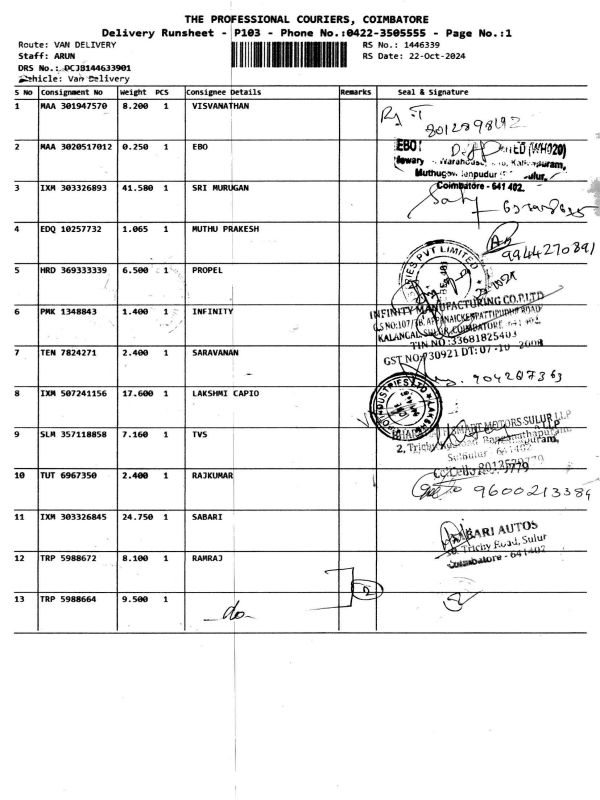 THE PROFESSIONAL COURIERS, COIMBATORE
Delivery Runsheet - P103 - Phone No.:0422-3505555 - Page No.:1
Route: VAN DELIVERY RS No.: 1446339
Staff: ARUN RS Date: 22-Oct-2024
DRS No.: DCJB144633901
Vehicle: Van Delivery
S No Consignment No Weight PCS Consignee Details Remarks Seal & Signature
1 MAA 301947570 8.200 1 VISVANATHAN
8012898192
2 MAA 3020517012 0.250 1 EBO
EBO
Coimbatore - 641 402.
3 IXM 303326893 41.580 1 SRI MURUGAN
4 EDQ 10257732 1.065 1 MUTHU PRAKESH
9944270891
5 HRD 369333339 6.500 1 PROPEL
PVT LIMITED
6 PMK 1348843 1.400 1 INFINITY
INFINITY MANUFACTURING CO.P.LTD
TIN NO:33681825403
7 TEN 7824271 2.400 1 SARAVANAN
8 IXM 507241156 17.600 1 LAKSHMI CAPIO
INDUSTRIES
9 SLM 357118858 7.160 1 TVS
MOTORS SULUR LLP
10 TUT 6967350 2.400 1 RAJKUMAR
9600213384
11 IXM 303326845 24.750 1 SABARI
AUTOS
Trichy Road, Sulur
Coimbatore - 641402
12 TRP 5988672 8.100 1 RAMRAJ
2
13 TRP 5988664 9.500 1
-do-